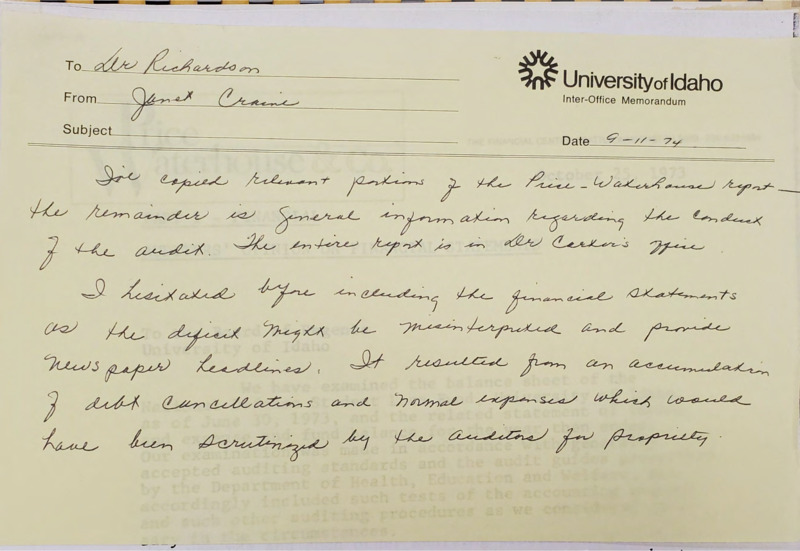 To Dr Richardson
University of Idaho
From Janet Craine
Inter-Office Memorandum
Subject
Date 9-11-74
I've copied relevant portions of the Price-Waterhouse report —
the remainder is general information regarding the conduct
of the audit. The entire report is in Dr Carter's office.
I hesitated before including the financial statements
as the deficit might be misinterpreted and provide
newspaper headlines. It resulted from an accumulation
of debt cancellations and normal expenses which would
have been scrutinized by the auditors for propriety.
Price
Waterhouse & Co.
University of Idaho
We have examined the balance sheet of the
as of June 30, 1973, and the related statement
accepted auditing standards and the audit guides
by the Department of Health, Education and Welfare
accordingly included such tests of the accounting
and such other auditing procedures as we